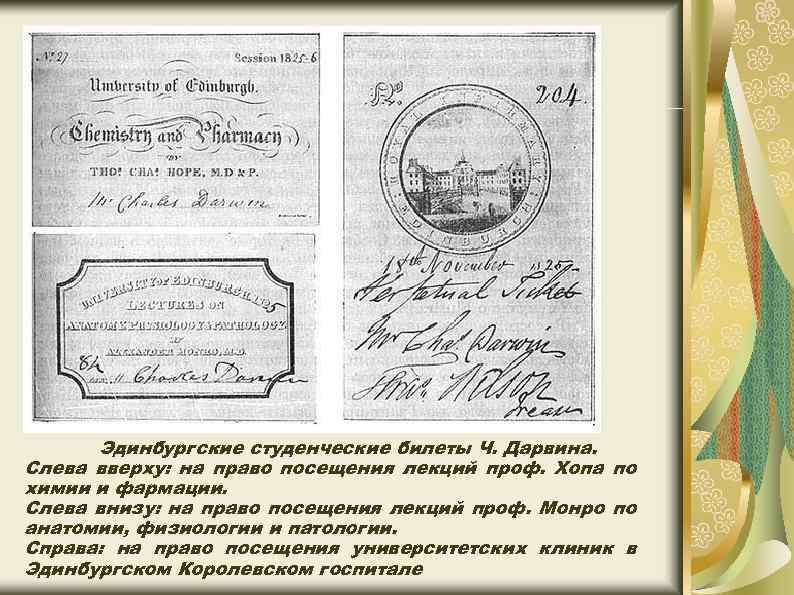 № 27 Session 1825-6
University of Edinburgh.
Chemistry and Pharmacy
BY
THOS CHAS HOPE, M.D & P.
Mr Charles Darwin
UNIVERSITY OF EDINBURGH 1825
LECTURES ON
ANATOMY, PHYSIOLOGY & PATHOLOGY
BY
ALEXANDER MONRO, M.D.
84
Charles Darwin
No. 204.
ROYAL INFIRMARY
EDINBURGH
18th November 1825
Perpetual Ticket
Mr Chas Darwin
Эдинбургские студенческие билеты Ч. Дарвина.
Слева вверху: на право посещения лекций проф. Хопа по
химии и фармации.
Слева внизу: на право посещения лекций проф. Монро по
анатомии, физиологии и патологии.
Справа: на право посещения университетских клиник в
Эдинбургском Королевском госпитале